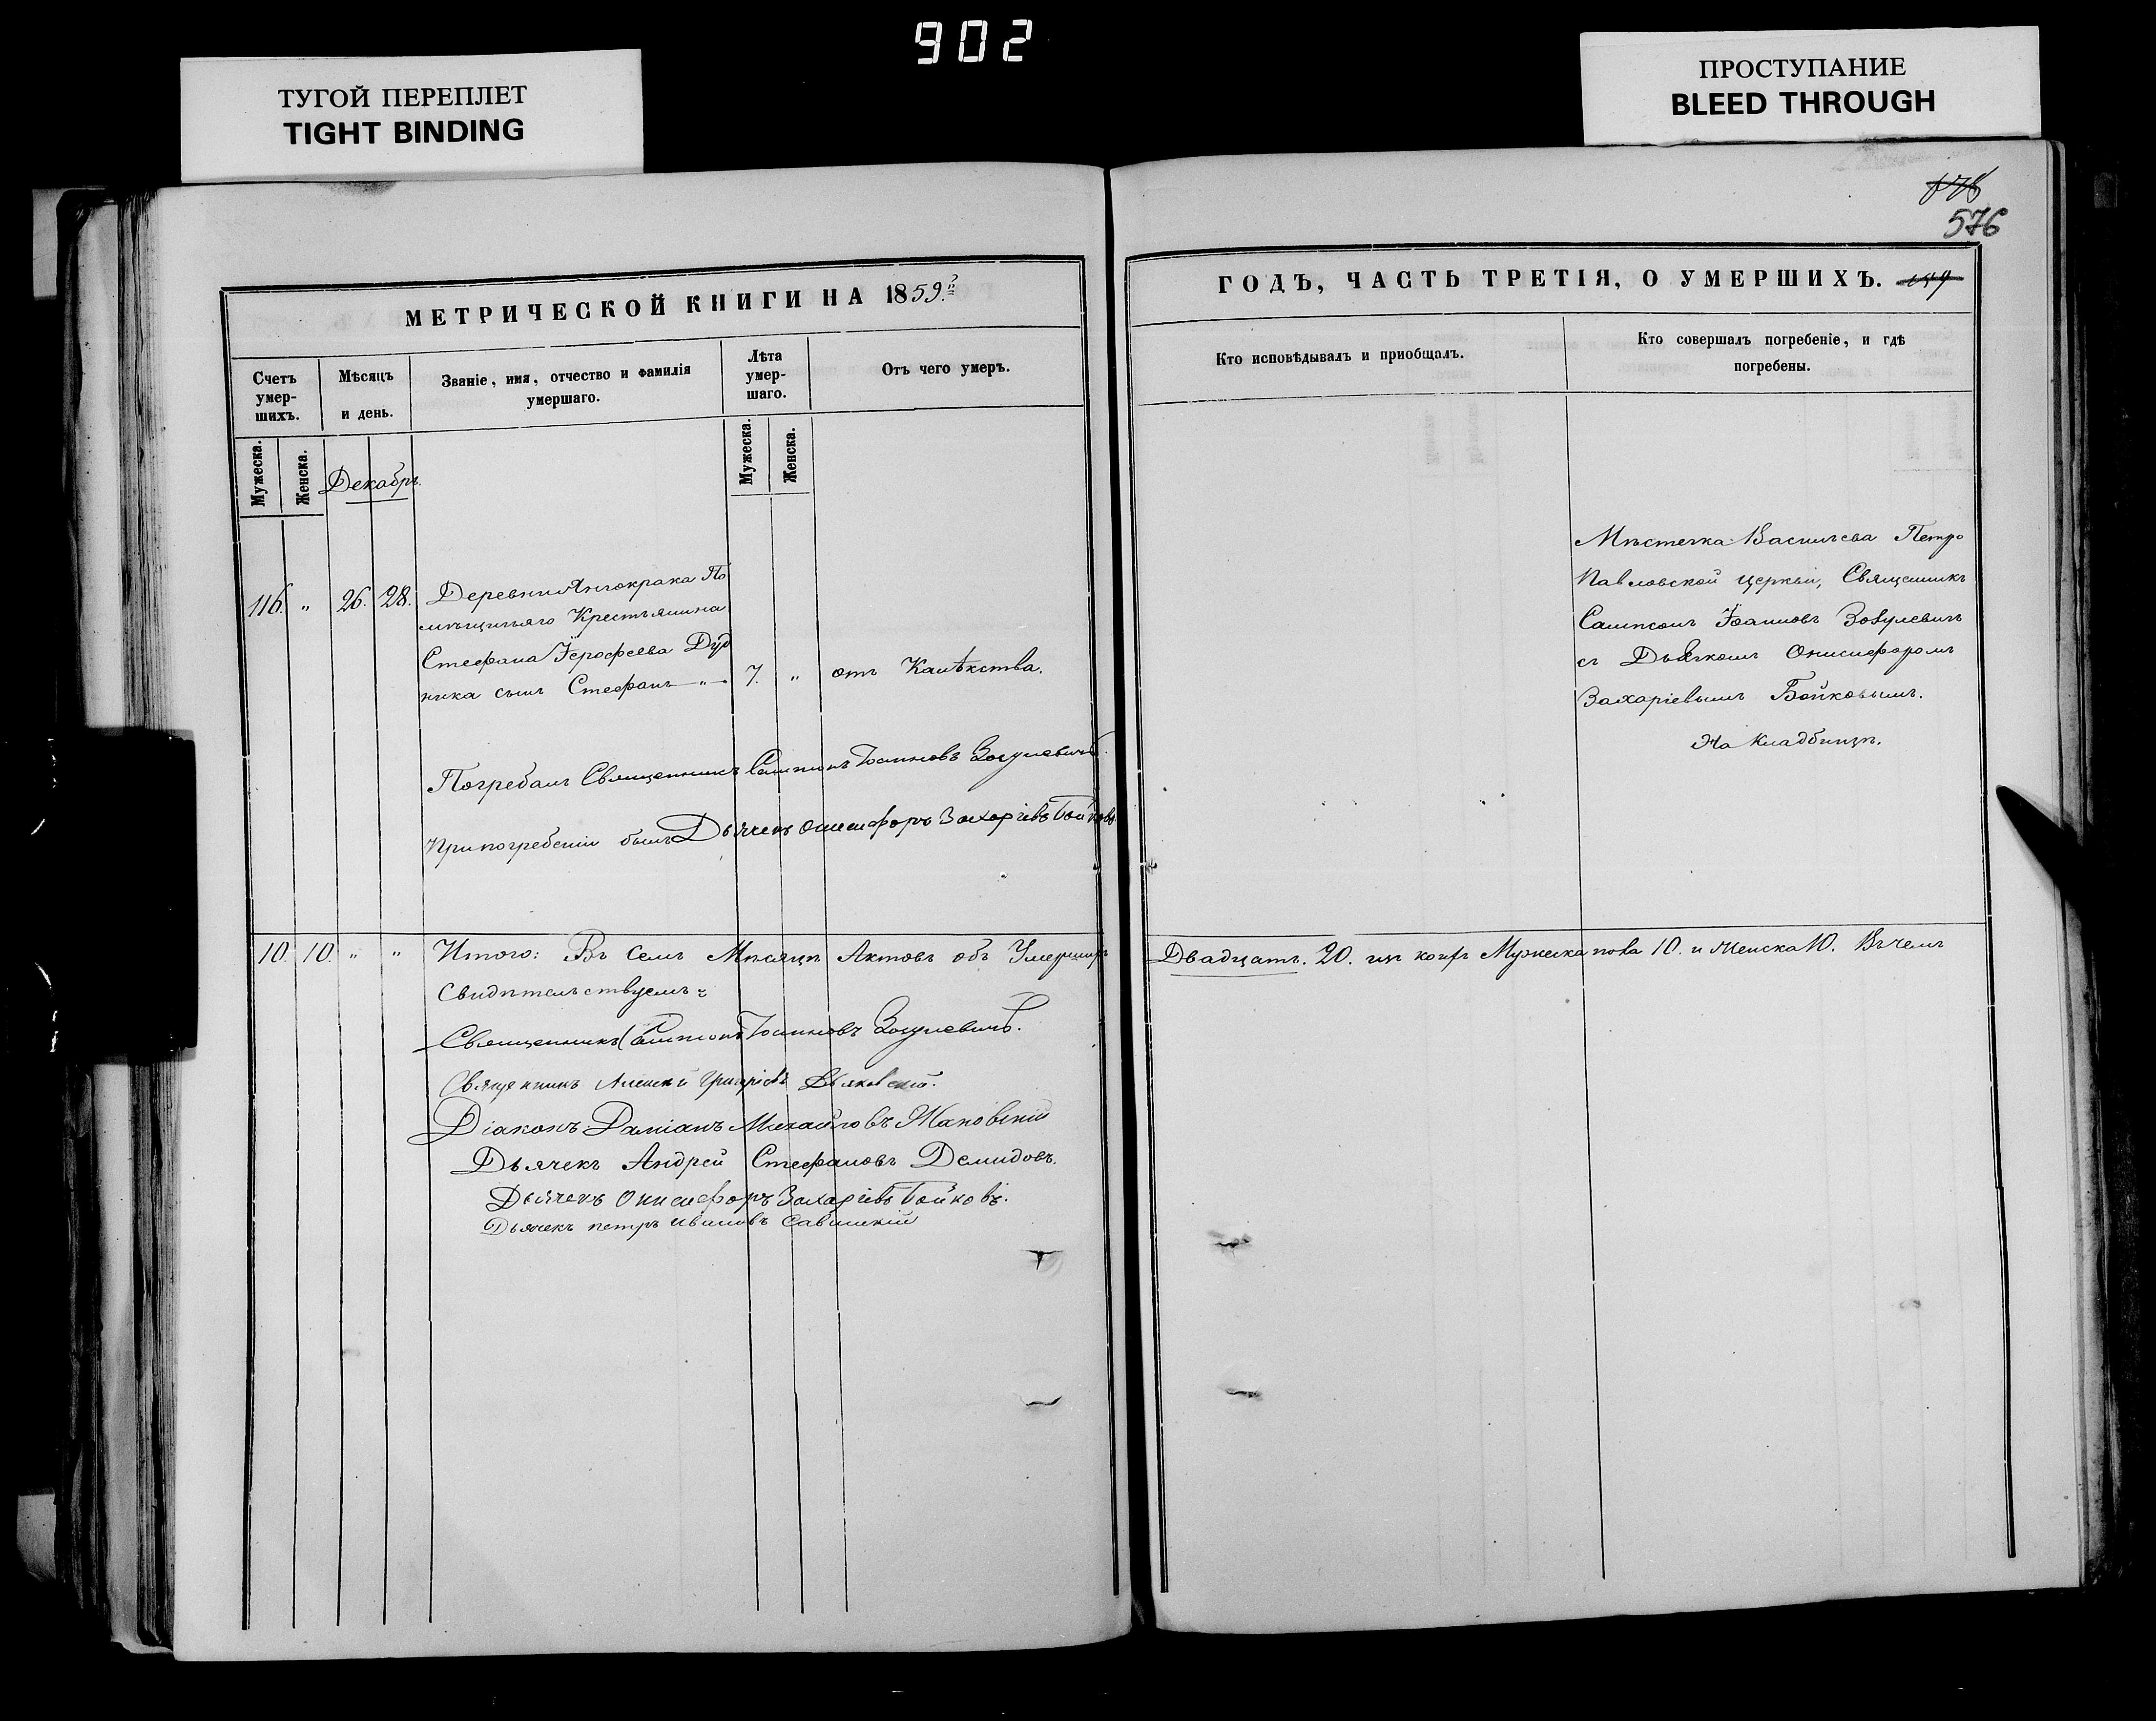 902
ТУГОЙ ПЕРЕПЛЕТ
TIGHT BINDING
ПРОСТУПАНИЕ
BLEED THROUGH
576
МЕТРИЧЕСКОЙ КНИГИ НА 1859.й
Счетъ умер-шихъ.
Мужеска.
Женска.
Мѣсяцъ и день.
Званіе, имя, отчество и фамилія умершаго.
Лѣта умер-шаго.
Мужеска.
Женска.
Отъ чего умеръ.
Декабрь.
116. " 26. 28. Деревни Янчокрака По
мѣщичьяго Крестьянина
Стефана Іерофеева Дуд
ника сынъ Стефанъ — " — 7. " отъ Калѣкства.
Погребалъ Священникъ Сампсонъ Іоанновъ Зосулевичъ.
При погребеніи былъ Дьячекъ Онисифоръ Захаріевъ Бойковъ
10. 10. " " Итого: Въ семъ Мѣсяцѣ Актовъ объ Умершихъ
Свидѣтельствуемъ:
Священникъ Сампсонъ Іоанновъ Зосулевичъ.
Священникъ Алексѣй Григоріевъ
Діаконъ Даміанъ Михайловъ
Дьячекъ Андрей Стефановъ Демидовъ.
Дьячекъ Онисифоръ Захаріевъ Бойковъ.
Дьячекъ петръ ивановъ Савицкій
ГОДЪ, ЧАСТЬ ТРЕТІЯ, О УМЕРШИХЪ.
Кто исповѣдывалъ и приобщалъ.
Кто совершалъ погребеніе, и гдѣ
погребены.
Мѣстечка Васильева Петро
Павловской церкви, Священникъ
Сампсонъ Іоанновъ Зосулевичъ
съ Дьячкомъ Онисифоромъ
Захаріевымъ Бойковымъ.
На Кладбищѣ.
Двадцать. 20. изъ коихъ Мужеска пола 10. и Женска 10. Въ чемъ